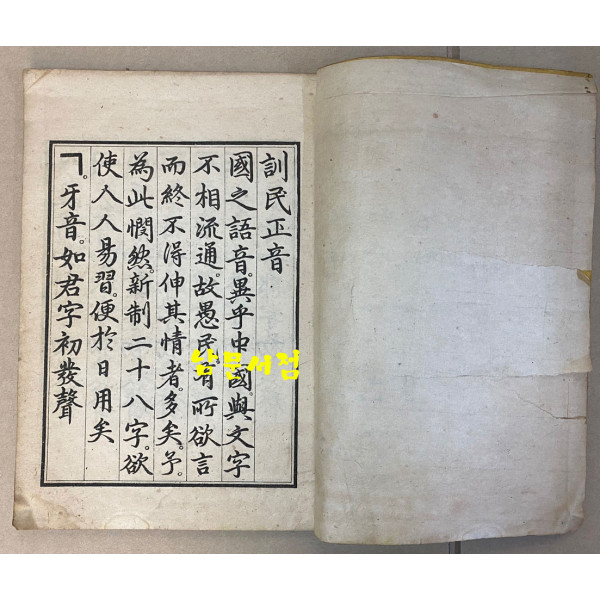 訓民正音
國之語音。異乎中國。與文字
不相流通。故愚民。有所欲言
而終不得伸其情者。多矣。予。
為此憫然。新制二十八字。欲
使人人易習。便於日用矣
ㄱ。牙音。如君字初發聲
남문서점